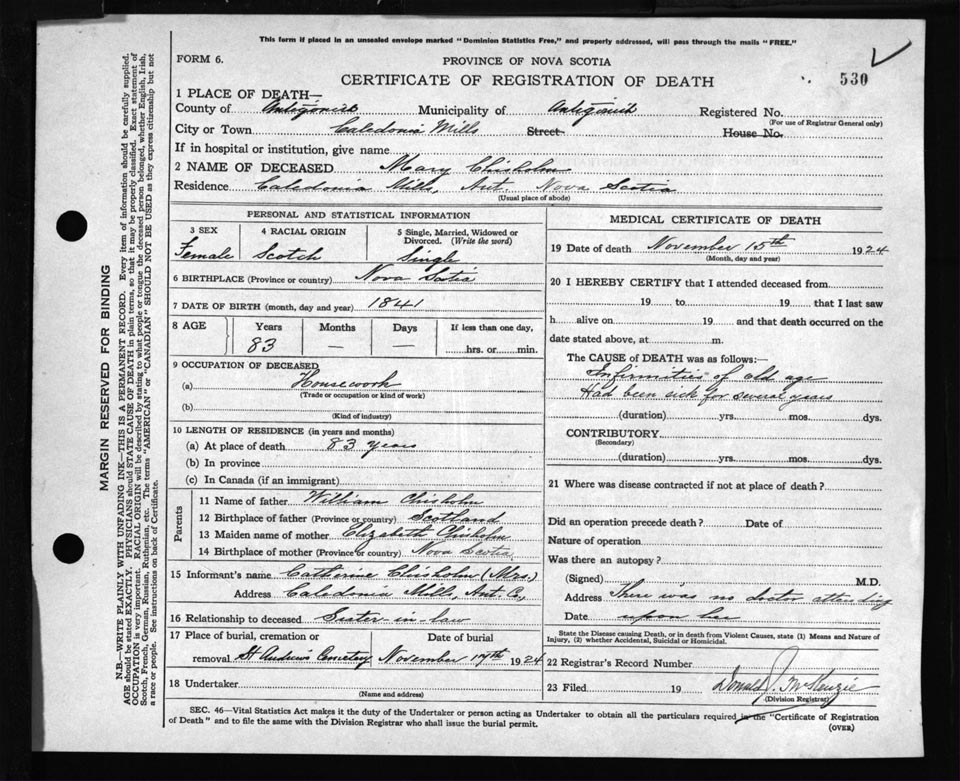 This form if placed in an unsealed envelope marked "Dominion Statistics Free," and properly addressed, will pass through the mails "FREE."
FORM 6.
PROVINCE OF NOVA SCOTIA
CERTIFICATE OF REGISTRATION OF DEATH
530
1 PLACE OF DEATH—
County of Antigonish Municipality of Antigonish Registered No.
(For use of Registrar General only)
City or Town Caledonia Mills Street House No.
If in hospital or institution, give name
2 NAME OF DECEASED Mary Chisholm
Residence Caledonia Mills, Ant. Nova Scotia
(Usual place of abode)
PERSONAL AND STATISTICAL INFORMATION
3 SEX 4 RACIAL ORIGIN 5 Single, Married, Widowed or Divorced. (Write the word)
Female Scotch Single
6 BIRTHPLACE (Province or country) Nova Scotia
7 DATE OF BIRTH (month, day and year) 1841
8 AGE Years Months Days If less than one day,
83 — — hrs. or min.
9 OCCUPATION OF DECEASED
(a) Housework
(Trade or occupation or kind of work)
(b)
(Kind of industry)
10 LENGTH OF RESIDENCE (in years and months)
(a) At place of death 83 years
(b) In province
(c) In Canada (if an immigrant)
Parents
11 Name of father William Chisholm
12 Birthplace of father (Province or country) Scotland
13 Maiden name of mother Elizabeth Chisholm
14 Birthplace of mother (Province or country) Nova Scotia
15 Informant's name Catherine Chisholm (Mrs.)
Address Caledonia Mills, Ant Co,
16 Relationship to deceased Sister-in-law
17 Place of burial, cremation or Date of burial
removal St Andrews Cemetery November 17th 1924
18 Undertaker
(Name and address)
MEDICAL CERTIFICATE OF DEATH
19 Date of death November 15th 1924
(Month, day and year)
20 I HEREBY CERTIFY that I attended deceased from
19 to 19 that I last saw
h alive on 19 and that death occurred on the
date stated above, at m.
The CAUSE of DEATH was as follows:—
Infirmities of old age
Had been sick for several years
(duration) yrs. mos. dys.
CONTRIBUTORY
(Secondary)
(duration) yrs. mos. dys.
21 Where was disease contracted if not at place of death?
Did an operation precede death? Date of
Nature of operation
Was there an autopsy?
(Signed) M.D.
Address There was no doctor attending
Date upon her
State the Disease causing Death, or in death from Violent Causes, state (1) Means and Nature of
Injury, (2) whether Accidental, Suicidal or Homicidal.
22 Registrar's Record Number
23 Filed 19 Donald J. McKenzie
(Division Registrar)
SEC. 46—Vital Statistics Act makes it the duty of the Undertaker or person acting as Undertaker to obtain all the particulars required in the "Certificate of Registration
of Death" and to file the same with the Division Registrar who shall issue the burial permit.
(OVER)
MARGIN RESERVED FOR BINDING
N.B.—WRITE PLAINLY WITH UNFADING INK—THIS IS A PERMANENT RECORD. Every item of information should be carefully supplied.
AGE should be stated EXACTLY. PHYSICIANS should STATE CAUSE OF DEATH in plain terms, so that it may be properly classified. Exact statement of
OCCUPATION is very important. RACIAL ORIGIN will be described by stating to what people or tongue the deceased person belonged, whether English, Irish,
Scotch, French, German, Russian, Ruthenian, etc. The terms "AMERICAN" or "CANADIAN" SHOULD NOT BE USED as they express citizenship but not
a race or people. See instructions on back of Certificate.